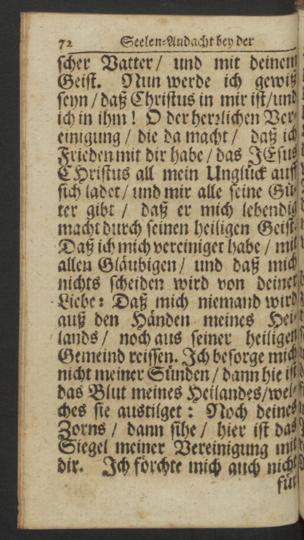 72 Seelen-Andacht bey der
scher Vatter / und mit deinem
Geist. Nun werde ich gewiß
seyn / daß Christus in mir ist / und
ich in ihm! O der herrlichen Ver-
einigung / die da macht / daß ich
Frieden mit dir habe / das JEsus
CHristus all mein Unglück auff
sich ladet / und mir alle seine Gü-
ter gibt / daß er mich lebendig
macht durch seinen heiligen Geist.
Daß ich mich vereiniget habe / mit
allen Gläubigen / und daß mich
nichts scheiden wird von deiner
Liebe: Daß mich niemand wird
auß den Händen meines Hei-
lands / noch aus seiner heiligen
Gemeind reissen. Ich besorge mich
nicht meiner Sünden / dann hie ist
das Blut meines Heilandes / wel-
ches sie austilget: Noch deines
Zorns / dann sihe / hier ist das
Siegel meiner Vereinigung mit
dir. Ich förchte mich auch nicht
für